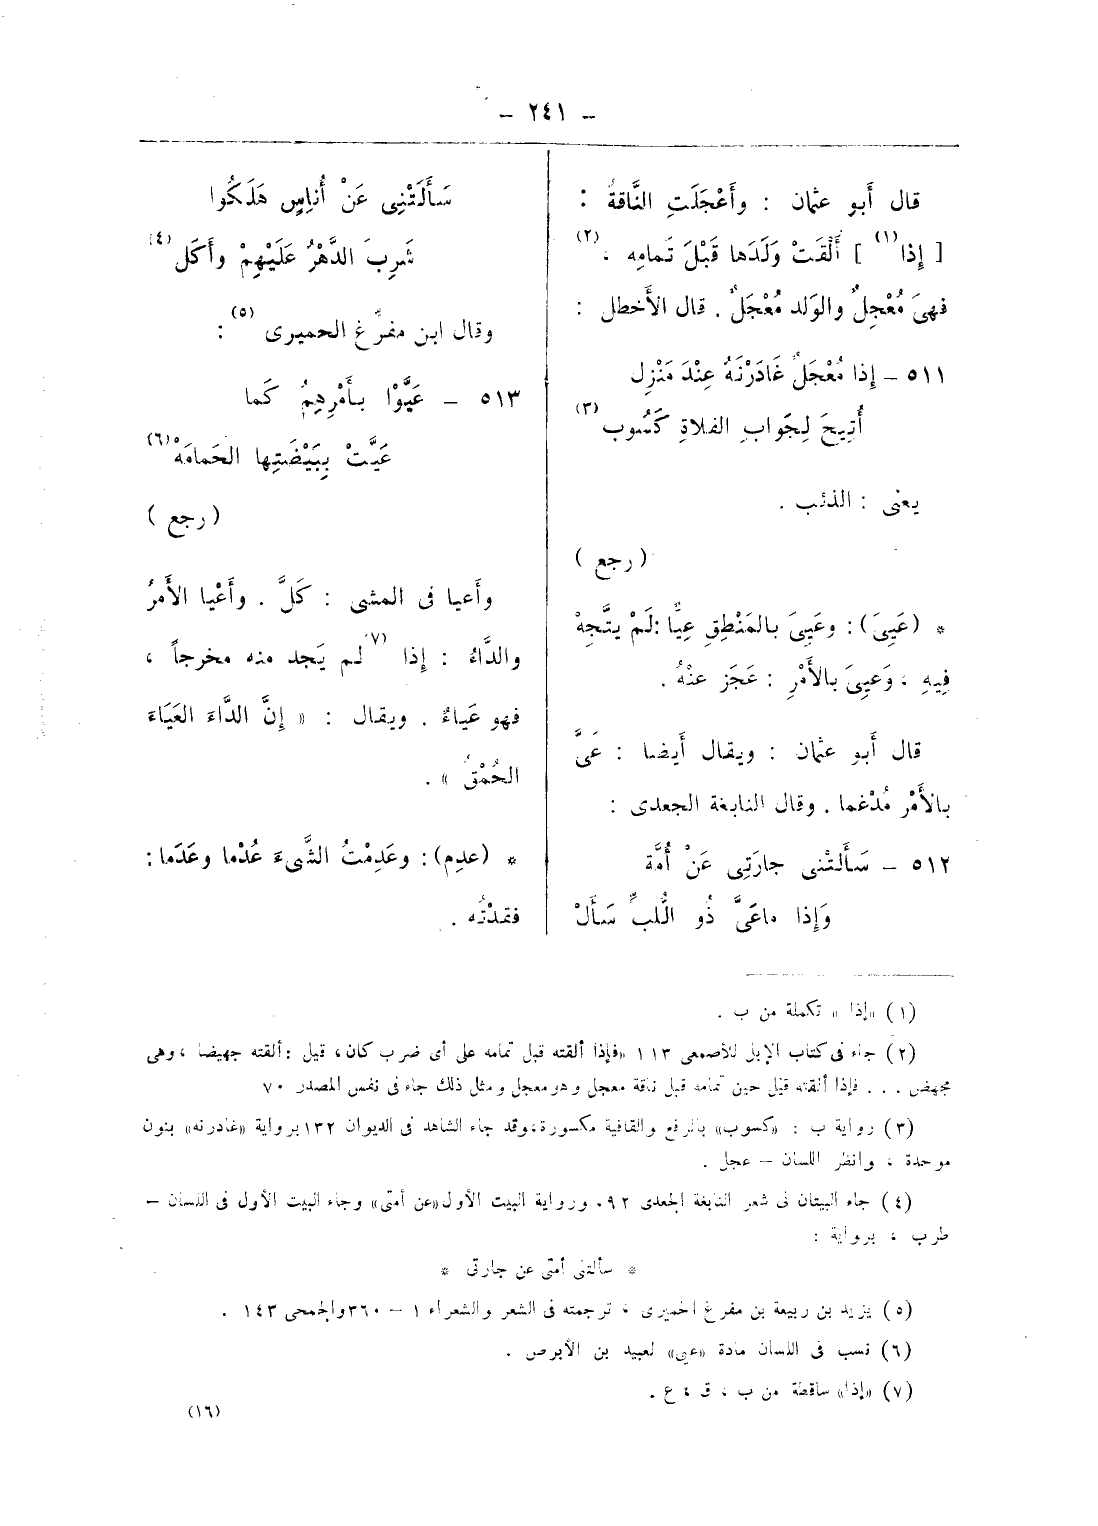 – ٢٤١ –
قال أَبو عثمان : وأَعْجَلَتِ النَّاقةُ :
[ إِذا(١) ] أَلْقَتْ وَلَدَها قَبْلَ تَمامِه ،(٢)
فهىَ مُعْجِلٌ والوَلد مُعْجَلٌ . قال الأَخطل :
٥١١ – إِذا مُعْجَلٌ غَادَرْنَهُ عِنْدَ مَنْزِلٍ
أُتِيحَ لِجَوابِ الفلاةِ كَسُوب(٣)
يعنى : الذئب .
( رجع )
* (عَيِىَ) : وعَيِىَ بالمَنْطِقِ عِيًّا : لَمْ يتَّجِهْ
فِيهِ ، وَعيِىَ بالأَمْرِ : عَجَز عنْهُ .
قال أَبو عثمان : ويقال أَيضا : عَىَّ
بالأَمْرِ مُدْغما . وقال النابغة الجعدى :
٥١٢ – سَأَلَتْنى جارَتِى عَنْ أُمَّة
وَإِذا ماعَىَّ ذُو اللُّبِّ سَأَلْ
سَأَلَتْنِى عَنْ أُناسٍ هَلَكُوا
شَرِبَ الدَّهْرُ عَلَيْهِمْ وأَكَل(٤)
وقال ابن مفرِّغ الحميرى(٥) :
٥١٣ – عَيُّوْا بأَمْرِهِمُ كَما
عَيَّتْ بِبَيْضَتِها الحَمامَهْ(٦)
( رجع )
وأَعيا فى المشى : كَلَّ . وأَعْيا الأَمرُ
والدَّاءُ : إِذا(٧) لم يَجد منه مخرجاً ،
فهو عَياءٌ . ويقال : « إِنَّ الداءَ العَيَاءَ
الحُمْقُ » .
* (عدِم) : وعَدِمْتُ الشَّىءَ عُدْما وعَدَما :
فقدْتُه .
(١) «إذا » تكملة من ب .
(٢) جاء فى كتاب الإبل للأصمعى ١١٣ «فإذا ألقته قبل تمامه على أى ضرب كان، قيل : ألقته جهيضا ، وهى
مجهض . . . فإذا ألقته قبل حين تمامه قيل ناقة معجل وهو معجل ومثل ذلك جاء فى نفس المصدر ٧٠
(٣) رواية ب : «كسوب» بالرفع والقافية مكسورة، وقد جاء الشاهد فى الديوان ١٣٢ برواية «غادرنه» بنون
موحدة ، وانظر اللسان – عجل .
(٤) جاء البيتان فى شعر النابغة الجعدى ٩٢ . ورواية البيت الأول «عن أمتى» وجاء البيت الأول فى اللسان –
طرب ، برواية :
* سألتنى أمتى عن جارتى *
(٥) يزيد بن ربيعة بن مفرغ الحميرى ، ترجمته فى الشعر والشعراء ١ – ٣٦٠ والجمحى ١٤٣ .
(٦) نسب فى اللسان مادة «عيى» لعبيد بن الأبرص .
(٧) «إذا» ساقطة من ب ، ق ٤ ع .
(١٦)